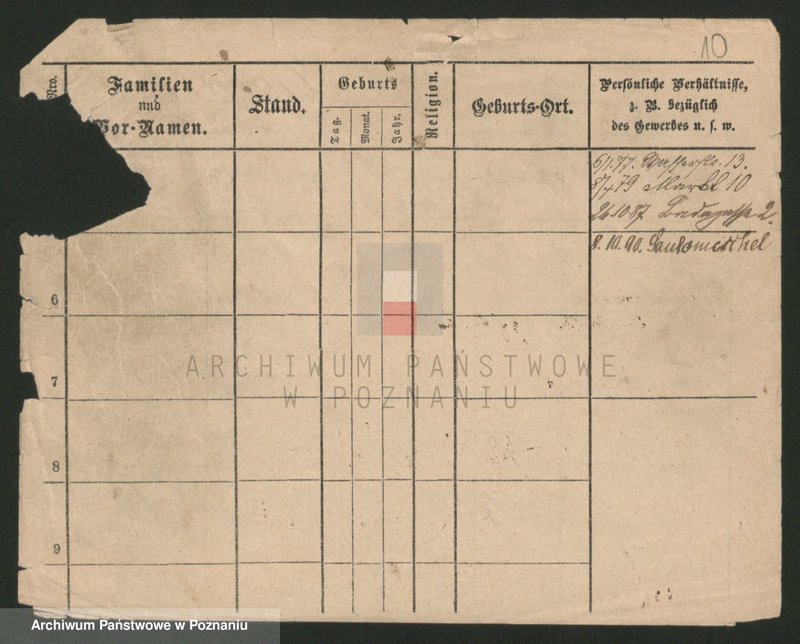 10
Nro.
Familien
und
Vor-Namen.
Stand.
Geburts
Tag.
Monat.
Jahr.
Religion.
Geburts-Ort.
Persönliche Verhältnisse,
z. B. bezüglich
des Gewerbes u. s. w.
6/1.77. Wasserstr. 13.
8/4 79 Markt 10
26.10.87. 2.
8. 10. 90.
6
7
8
9
ARCHIWUM PAŃSTWOWE
W POZNANIU
Archiwum Państwowe w Poznaniu